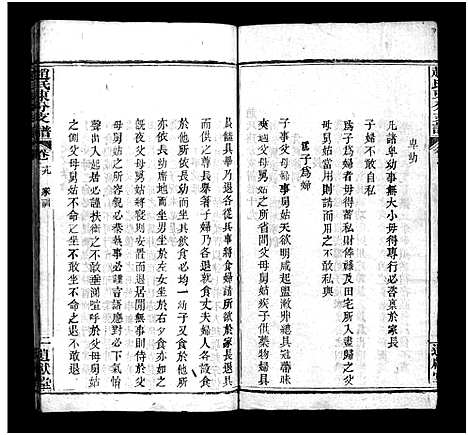 卑幼
凡諸卑幼事無大小毋得專行必咨稟於家長
子婦不敢自私
爲子爲婦者毋得蓄私財俸祿及田宅所入盡歸之父
母舅姑當用則請而用之不敢私與
爲子爲婦
子事父母婦事舅姑天欲明咸起盥漱櫛總具冠帶昧
爽適父母舅姑之所省問父母舅姑
子供藥物婦具
晨饈具畢乃退各從其事將食婦請所欲於家長退具
而供之尊長舉箸子婦乃各退就食丈夫婦人各設食
於他所依長幼而坐其飲食必均一幼子又食於他所
亦依長幼席地而坐男坐於左女坐於右夕食亦如之
既夜父母舅姑將寢則安置而退居閒無事則侍於父
母舅姑之所容貌必恭執事必謹言語應對必下氣怡
聲出入起居必謹扶衛之不敢涕唾喧呼於父母舅姑
之側父母舅姑不命之坐不敢坐不命之退不敢退
趙氏東分支譜
卷之九
家訓
二